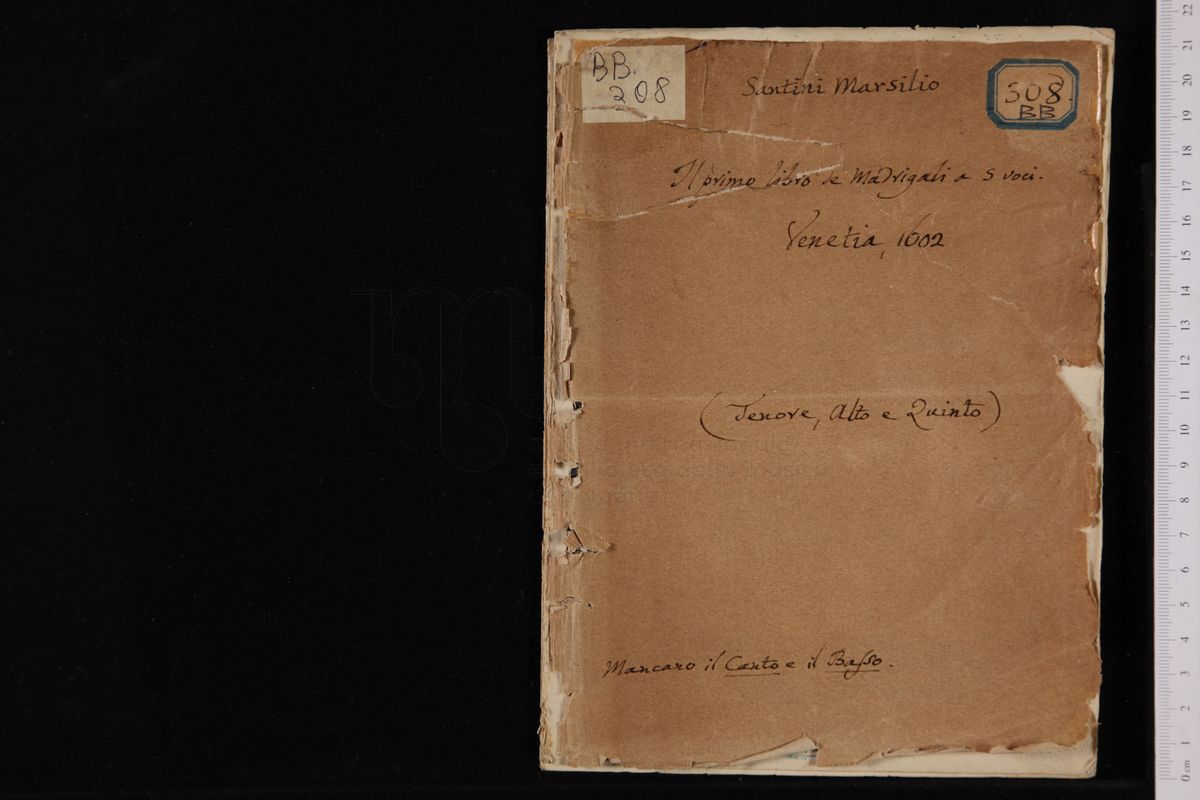 BB.
208
Santini Marsilio
308.
BB
Il primo libro de Madrigali a 5 voci.
Venetia, 1602
(Tenore, Alto e Quinto)
Mancano il Canto e il Basso.
0 cm 1 2 3 4 5 6 7 8 9 10 11 12 13 14 15 16 17 18 19 20 21 22